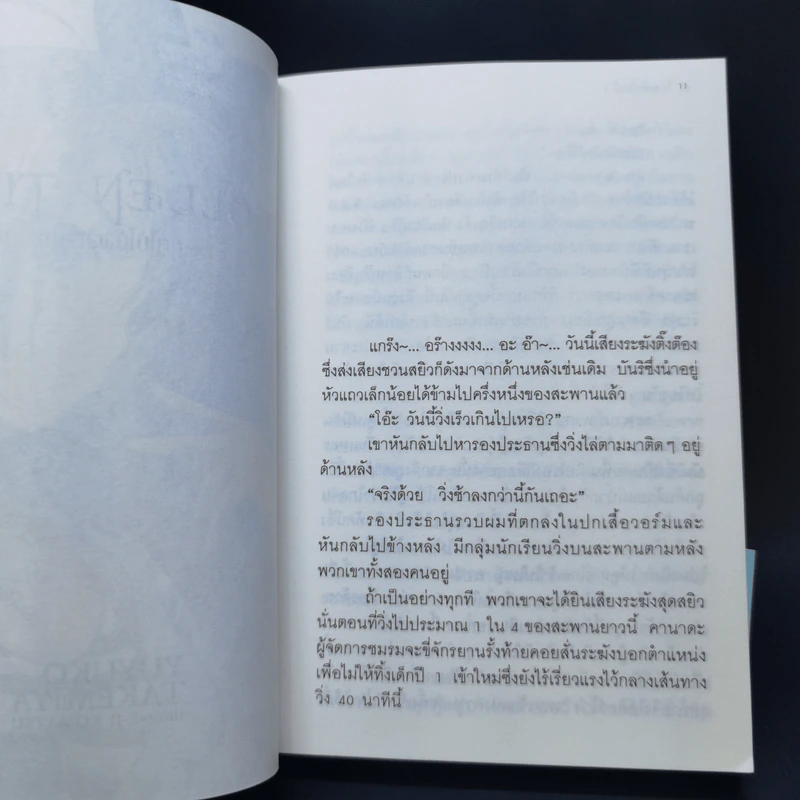 11
แกร๊ง~... อร๊างงงงง... อะ อ๊า~... วันนี้เสียงระฆังติ๊งต๊อง
ซึ่งส่งเสียงชวนสยิวก็ดังมาจากด้านหลังเช่นเดิม บันริซึ่งนำอยู่
หัวแถวเล็กน้อยได้ข้ามไปครึ่งหนึ่งของสะพานแล้ว
“โอ๊ะ วันนี้วิ่งเร็วเกินไปเหรอ?”
เขาหันกลับไปหารองประธานซึ่งวิ่งไล่ตามมาติดๆ อยู่
ด้านหลัง
“จริงด้วย วิ่งช้าลงกว่านี้กันเถอะ”
รองประธานรวบผมที่ตกลงในปกเสื้อวอร์มและ
หันกลับไปข้างหลัง มีกลุ่มนักเรียนวิ่งบนสะพานตามหลัง
พวกเขาทั้งสองคนอยู่
ถ้าเป็นอย่างทุกที พวกเขาจะได้ยินเสียงระฆังสุดสยิว
นั่นตอนที่วิ่งไปประมาณ 1 ใน 4 ของสะพานยาวนี้ คานาดะ
ผู้จัดการชมรมจะขี่จักรยานรั้งท้ายคอยสั่นระฆังบอกตำแหน่ง
เพื่อไม่ให้ทิ้งเด็กปี 1 เข้าใหม่ซึ่งยังไร้เรี่ยวแรงไว้กลางเส้นทาง
วิ่ง 40 นาทีนี้